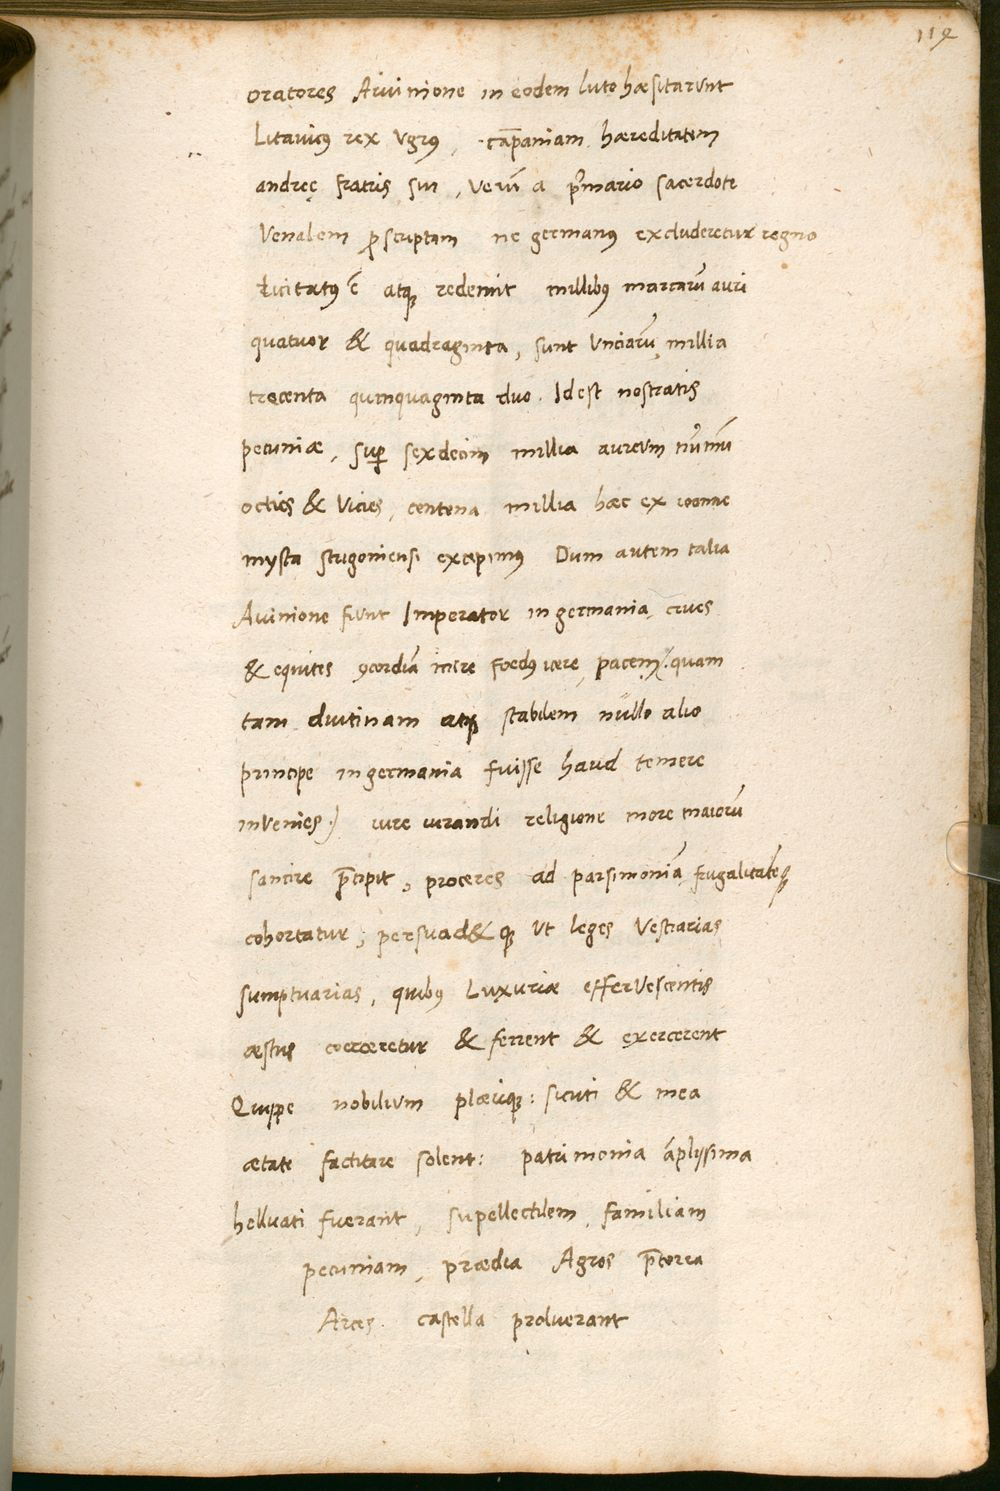 119
oratores Auinione in eodem luto hæsitarunt
Litauicꝰ rex Vgrꝰ, cãpaniam hæreditatem
andreę fratris sui, verũ a p̃mario sacerdote
Venalem ꝓscriptam ne germanus excluderetur regno
Licitatꝰ ẽ atqꝫ redemit millibꝰ marcarũ auri
quatuor & quadraginta, sunt Vnciarũ millia
trecenta quinquaginta duo. Idest nostratis
pecuniæ, suꝑ sexdecim millia aureum nũmũ
octies & Vicies, centena millia hæc ex ioanne
mysta strigoniensi excepimꝰ Dum autem talia
Auinione fiunt Imperator in germania, ciues
& equites ꝯcordiã inire foedꝰ icere, pacem (quam
tam diutinam atqꝫ stabilem nullo alio
principe in germania fuisse haud temere
invenies) iure iurandi religione more maiorũ
sancire p̃cipit, proceres ad parsimoniã frugalitatẽqꝫ
cohortatur, persuad&qꝫ Vt leges Vestiarias
sumptuarias, quibꝰ Luxuriæ efferVescentis
æstus coerceretur & ferrent & exercerent
Quippe nobilium plæriqꝫ: sicuti & mea
ætate factitare solent: patrimonia ãplissima
helluati fuerant, supellectilem, familiam
pecuniam, prædia Agros p̃toria
Arces castella proluerant